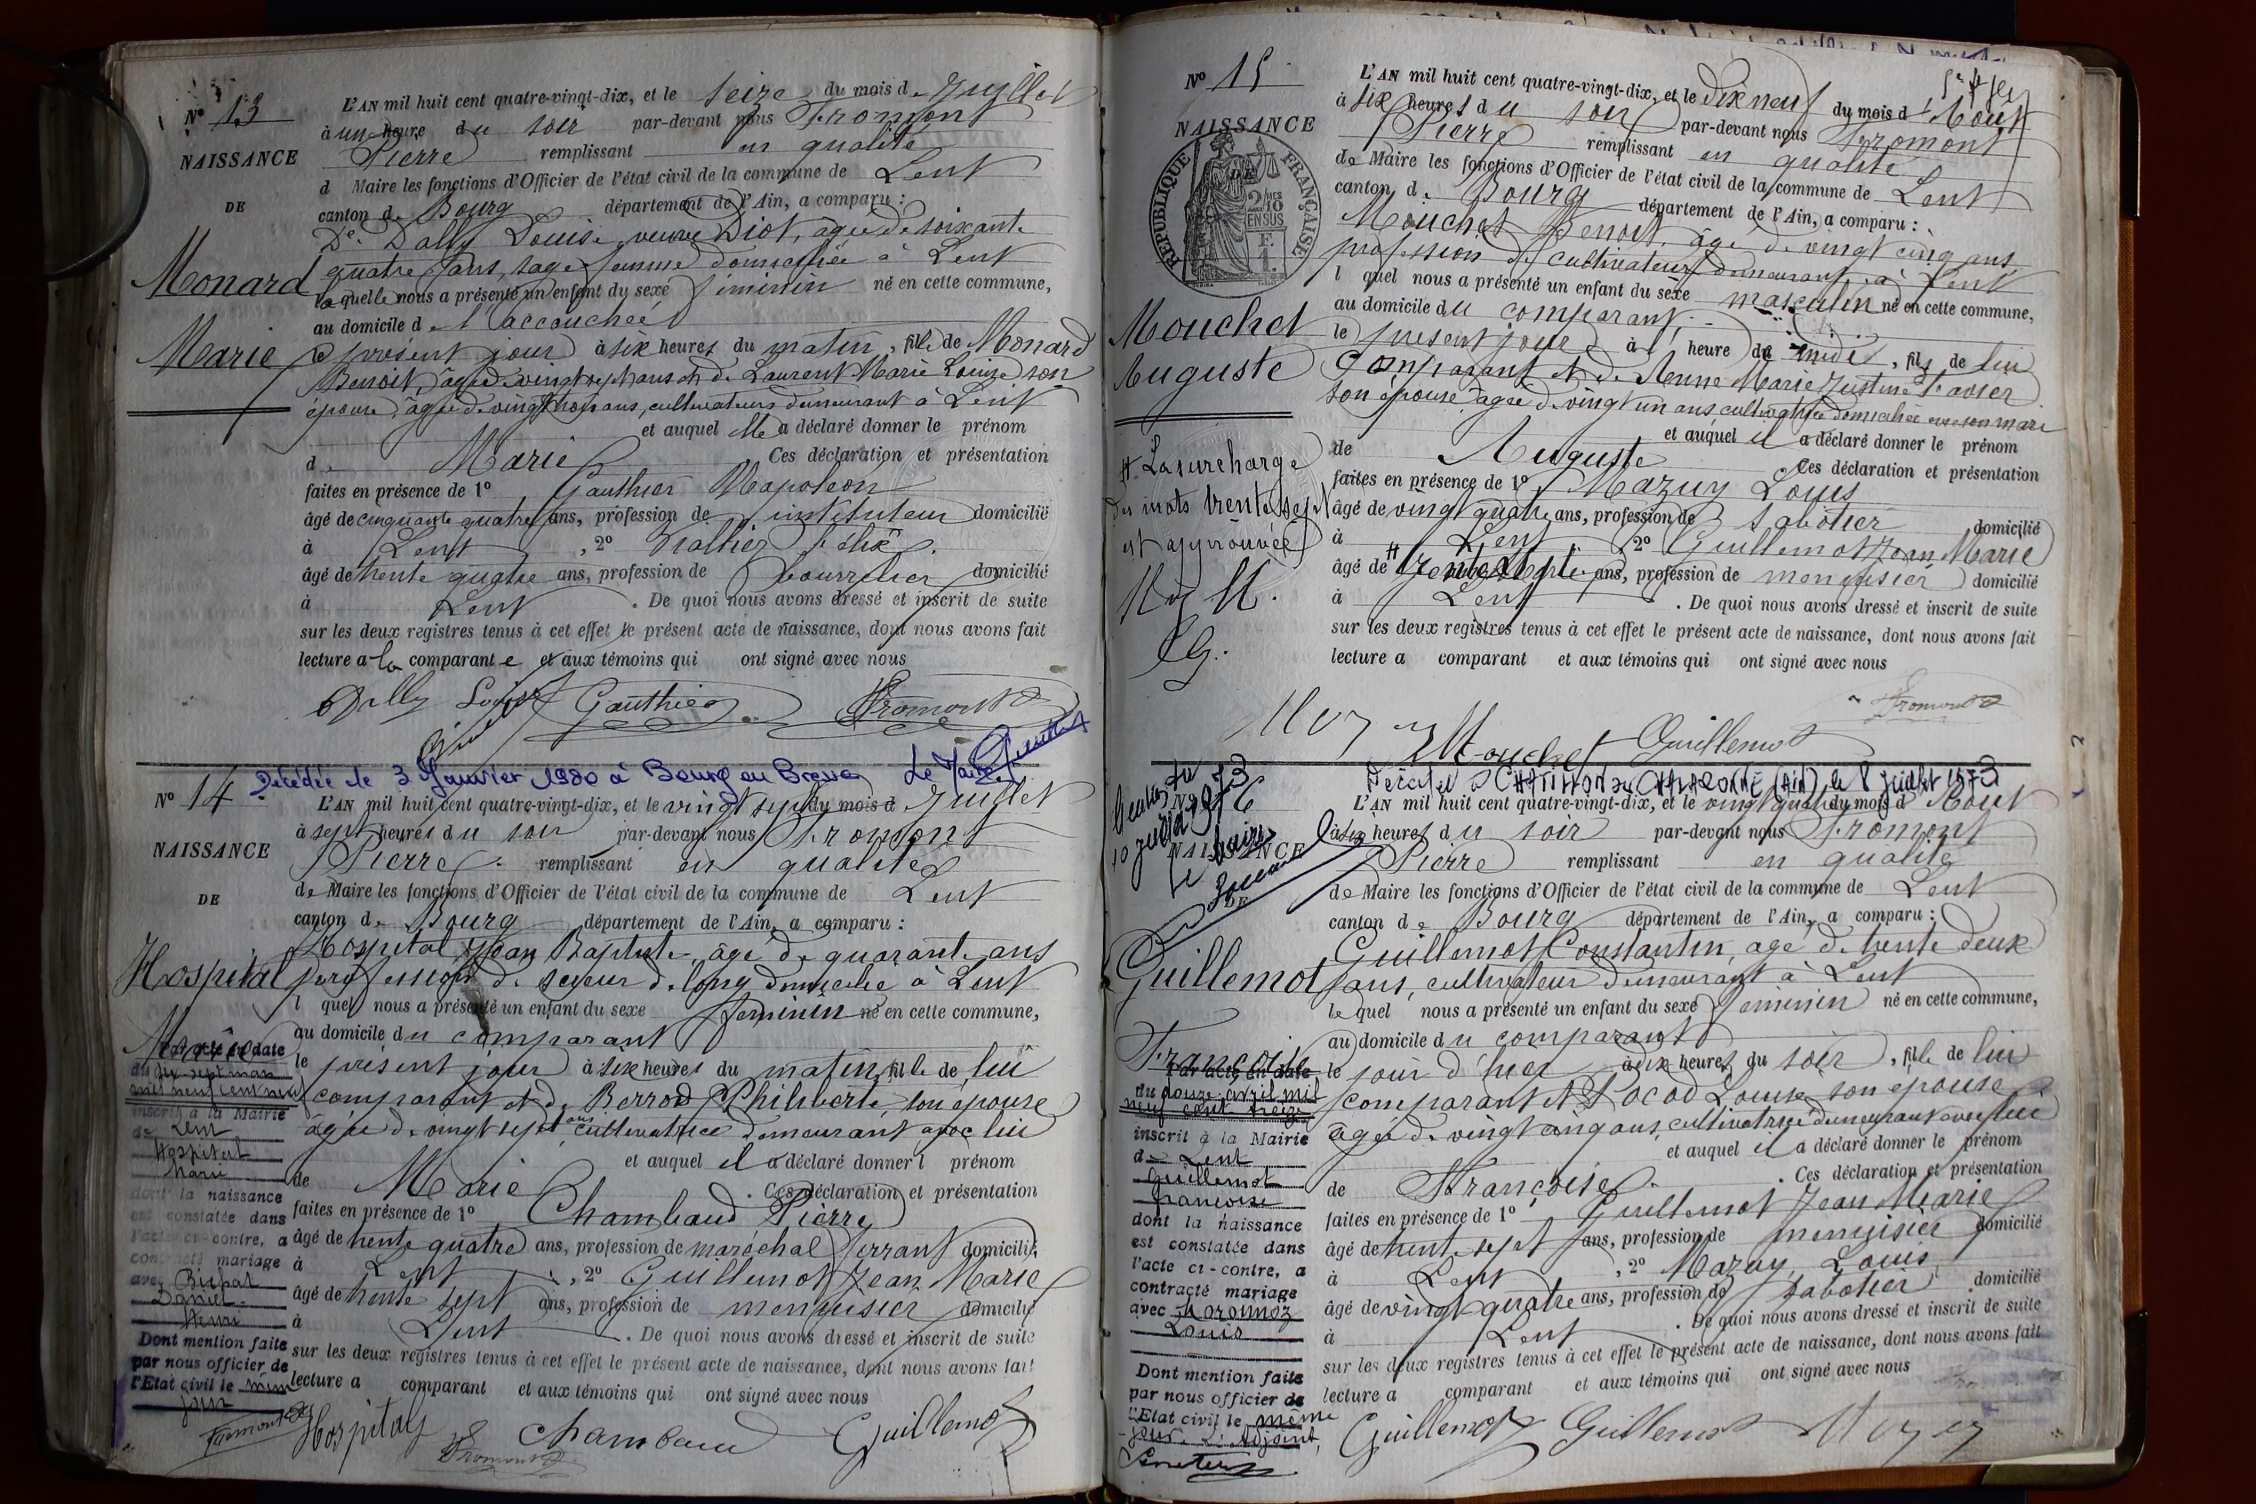 N° 13
NAISSANCE
DE
Monard
Marie
L'AN mil huit cent quatre-vingt-dix, et le seize du mois de Juillet
à une heure du soir par-devant nous Fromont
Pierre remplissant en qualité
d Maire les fonctions d'Officier de l'état civil de la commune de Lent
canton de Bourg département de l'Ain, a comparu :
De Dally Louise veuve Diot, agée de soixante
quatre ans, sage femme domiciliée à Lent
laquelle nous a présenté un enfant du sexe féminin né en cette commune,
au domicile de l'accouchée
le présent jour à six heures du matin, fille de Monard
Benoit, âgé de vingt sept ans et de Laurent Marie Louise son
épouse, âgée de vingt trois ans, cultivateurs demeurant à Lent
et auquel elle a déclaré donner le prénom
de Marie Ces déclaration et présentation
faites en présence de 1° Gauthier Napoléon
âgé de cinquante quatre ans, profession de instituteur domicilié
à Lent , 2° Félix
âgé de trente quatre ans, profession de bourrelier domicilié
à Lent . De quoi nous avons dressé et inscrit de suite
sur les deux registres tenus à cet effet le présent acte de naissance, dont nous avons fait
lecture a la comparante et aux témoins qui ont signé avec nous
Dally Louise Gauthier Fromont
Décédée le 3 Janvier 1980 à Bourg en Bresse Le Maire
N° 14
NAISSANCE
DE
Hospital
Marie
Par acte en date
du dix-sept mars
mil neuf cent neuf
inscrit à la Mairie
de Lent
Hospital
Marie
dont la naissance
est constatée dans
l'acte ci-contre, a
contracté mariage
avec
Daniel
Henri
Dont mention faite
par nous officier de
l'Etat civil le même
jour
Fromont
L'AN mil huit cent quatre-vingt-dix, et le vingt sept du mois d Juillet
à sept heures du soir par-devant nous Fromont
Pierre remplissant en qualité
de Maire les fonctions d'Officier de l'état civil de la commune de Lent
canton de Bourg département de l'Ain, a comparu :
Hospital Jean Baptiste, âgé de quarante ans
profession de scieur de long domicilié à Lent
l quel nous a présenté un enfant du sexe féminin né en cette commune,
au domicile du comparant
le présent jour à six heures du matin, fille de lui
comparant et de Berrod Philiberte, son épouse
âgée de vingt sept ans cultivatrice demeurant avec lui
et auquel il a déclaré donner l prénom
de Marie . Ces déclaration et présentation
faites en présence de 1° Chambaud Pierre
âgé de trente quatre ans, profession de maréchal ferrant domicilié
à Lent , 2° Guillemot Jean Marie
âgé de trente sept ans, profession de menuisier domicilié
à Lent . De quoi nous avons dressé et inscrit de suite
sur les deux registres tenus à cet effet le présent acte de naissance, dont nous avons fait
lecture a comparant et aux témoins qui ont signé avec nous
Hospital Fromont Chambaud Guillemot
N° 15
NAISSANCE
DE
RÉPUBLIQUE FRANÇAISE
2/10es EN SUS
Mouchet
Auguste
La surcharge
des mots trente sept
est approuvée
L'AN mil huit cent quatre-vingt-dix, et le dix neuf du mois d'Aout
à six heures du soir par-devant nous Fromont
Pierre remplissant en qualité
de Maire les fonctions d'Officier de l'état civil de la commune de Lent
canton de Bourg département de l'Ain, a comparu :
Mouchet Benoit, âgé de vingt cinq ans
profession de cultivateur demeurant à Lent
l quel nous a présenté un enfant du sexe masculin né en cette commune,
au domicile du comparant,
le présent jour à l heure de midi, fils de lui
comparant et de Anne Marie Justine
son épouse agée de vingt un ans cultivatrice domiciliée avec son mari
et auquel il a déclaré donner le prénom
de Auguste Ces déclaration et présentation
faites en présence de 1° Mazuy Louis
âgé de vingt quatre ans, profession de sabotier domicilié
à Lent 2° Guillemot Jean Marie
âgé de trente sept ans, profession de menuisier domicilié
à Lent . De quoi nous avons dressé et inscrit de suite
sur les deux registres tenus à cet effet le présent acte de naissance, dont nous avons fait
lecture a comparant et aux témoins qui ont signé avec nous
Fromont
Mouchet Guillemot
Décédé à CHATILLON sur CHALARONNE (Ain) le 8 juillet 1973
10 juillet 1973
Le Maire
N° 16
NAISSANCE
DE
Guillemot
Françoise
Par acte en date
du douze avril mil
neuf cent treize
inscrit à la Mairie
de Lent
Guillemot
Françoise
dont la naissance
est constatée dans
l'acte ci-contre, a
contracté mariage
avec
Louis
Dont mention faite
par nous officier de
l'Etat civil le même
jour. L'Adjoint,
L'AN mil huit cent quatre-vingt-dix, et le vingt quatre du mois d'Aout
à six heures du soir par-devant nous Fromont
Pierre remplissant en qualité
de Maire les fonctions d'Officier de l'état civil de la commune de Lent
canton de Bourg département de l'Ain, a comparu :
Guillemot Constantin, agé de trente deux
ans, cultivateur demeurant à Lent
lequel nous a présenté un enfant du sexe féminin né en cette commune,
au domicile du comparant
le jour d'hier à dix heures du soir, fille de lui
comparant et Pocod Louise son épouse
âgée de vingt cinq ans, cultivatrice demeurant avec lui
et auquel il a déclaré donner le prénom
de Françoise . Ces déclaration et présentation
faites en présence de 1° Guillemot Jean Marie
âgé de trente sept ans, profession de menuisier domicilié
à Lent , 2° Mazuy Louis
âgé de vingt quatre ans, profession de sabotier domicilié
à Lent . De quoi nous avons dressé et inscrit de suite
sur les deux registres tenus à cet effet le présent acte de naissance, dont nous avons fait
lecture a comparant et aux témoins qui ont signé avec nous
Guillemot Guillemot